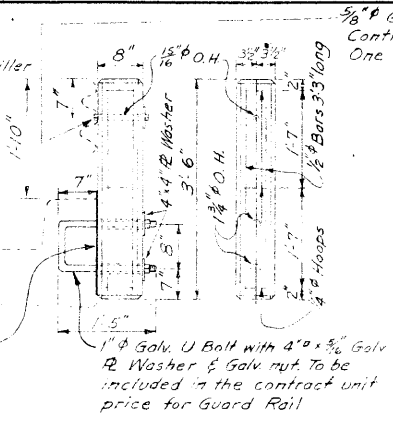 5/8" ϕ G
Cont
One
iller
8"
15/16" ϕ O.H.
3½" 3½"
7"
1'-10"
4"×4" ℞ Washer
3'-6"
2"
1'-7"
½" ϕ Bars 3'-3" long
7"
1¾" ϕ O.H.
8"
7"
1'-7"
¼" ϕ Hoops
2"
1'-5"
1" ϕ Galv. U Bolt with 4"▫ × 5/16" Galv
℞ Washer & Galv. nut. To be
included in the contract unit
price for Guard Rail